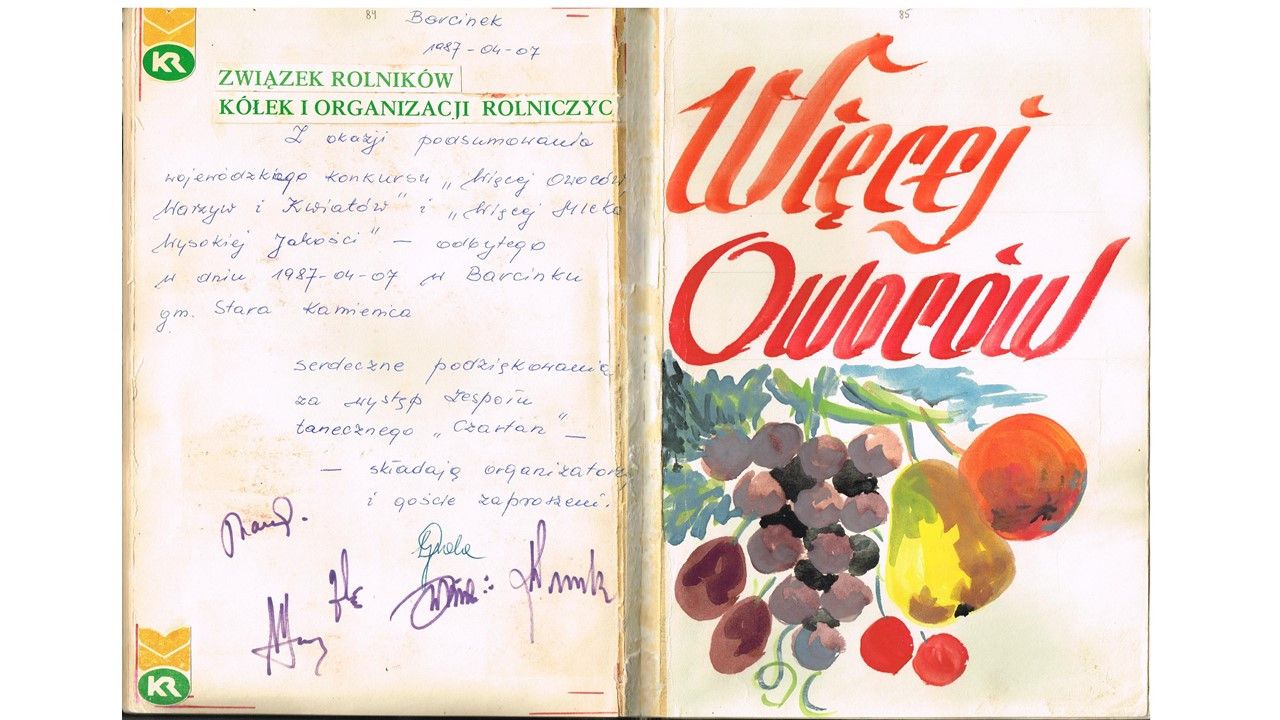 84
Barcinek
1987-04-07
KR
ZWIĄZEK ROLNIKÓW
KÓŁEK I ORGANIZACJI ROLNICZYC
Z okazji podsumowania
wojewódzkiego konkursu „Więcej Owoców,
Warzyw i Kwiatów" i „Więcej Mleka
Wysokiej Jakości" – odbytego
w dniu 1987-04-07 w Barcinku
gm. Stara Kamienica
serdeczne podziękowania
za występ Zespołu
tanecznego „Czartan" –
– składają organizatorzy
i goście zaproszeni.
KR
85
Więcej
Owoców